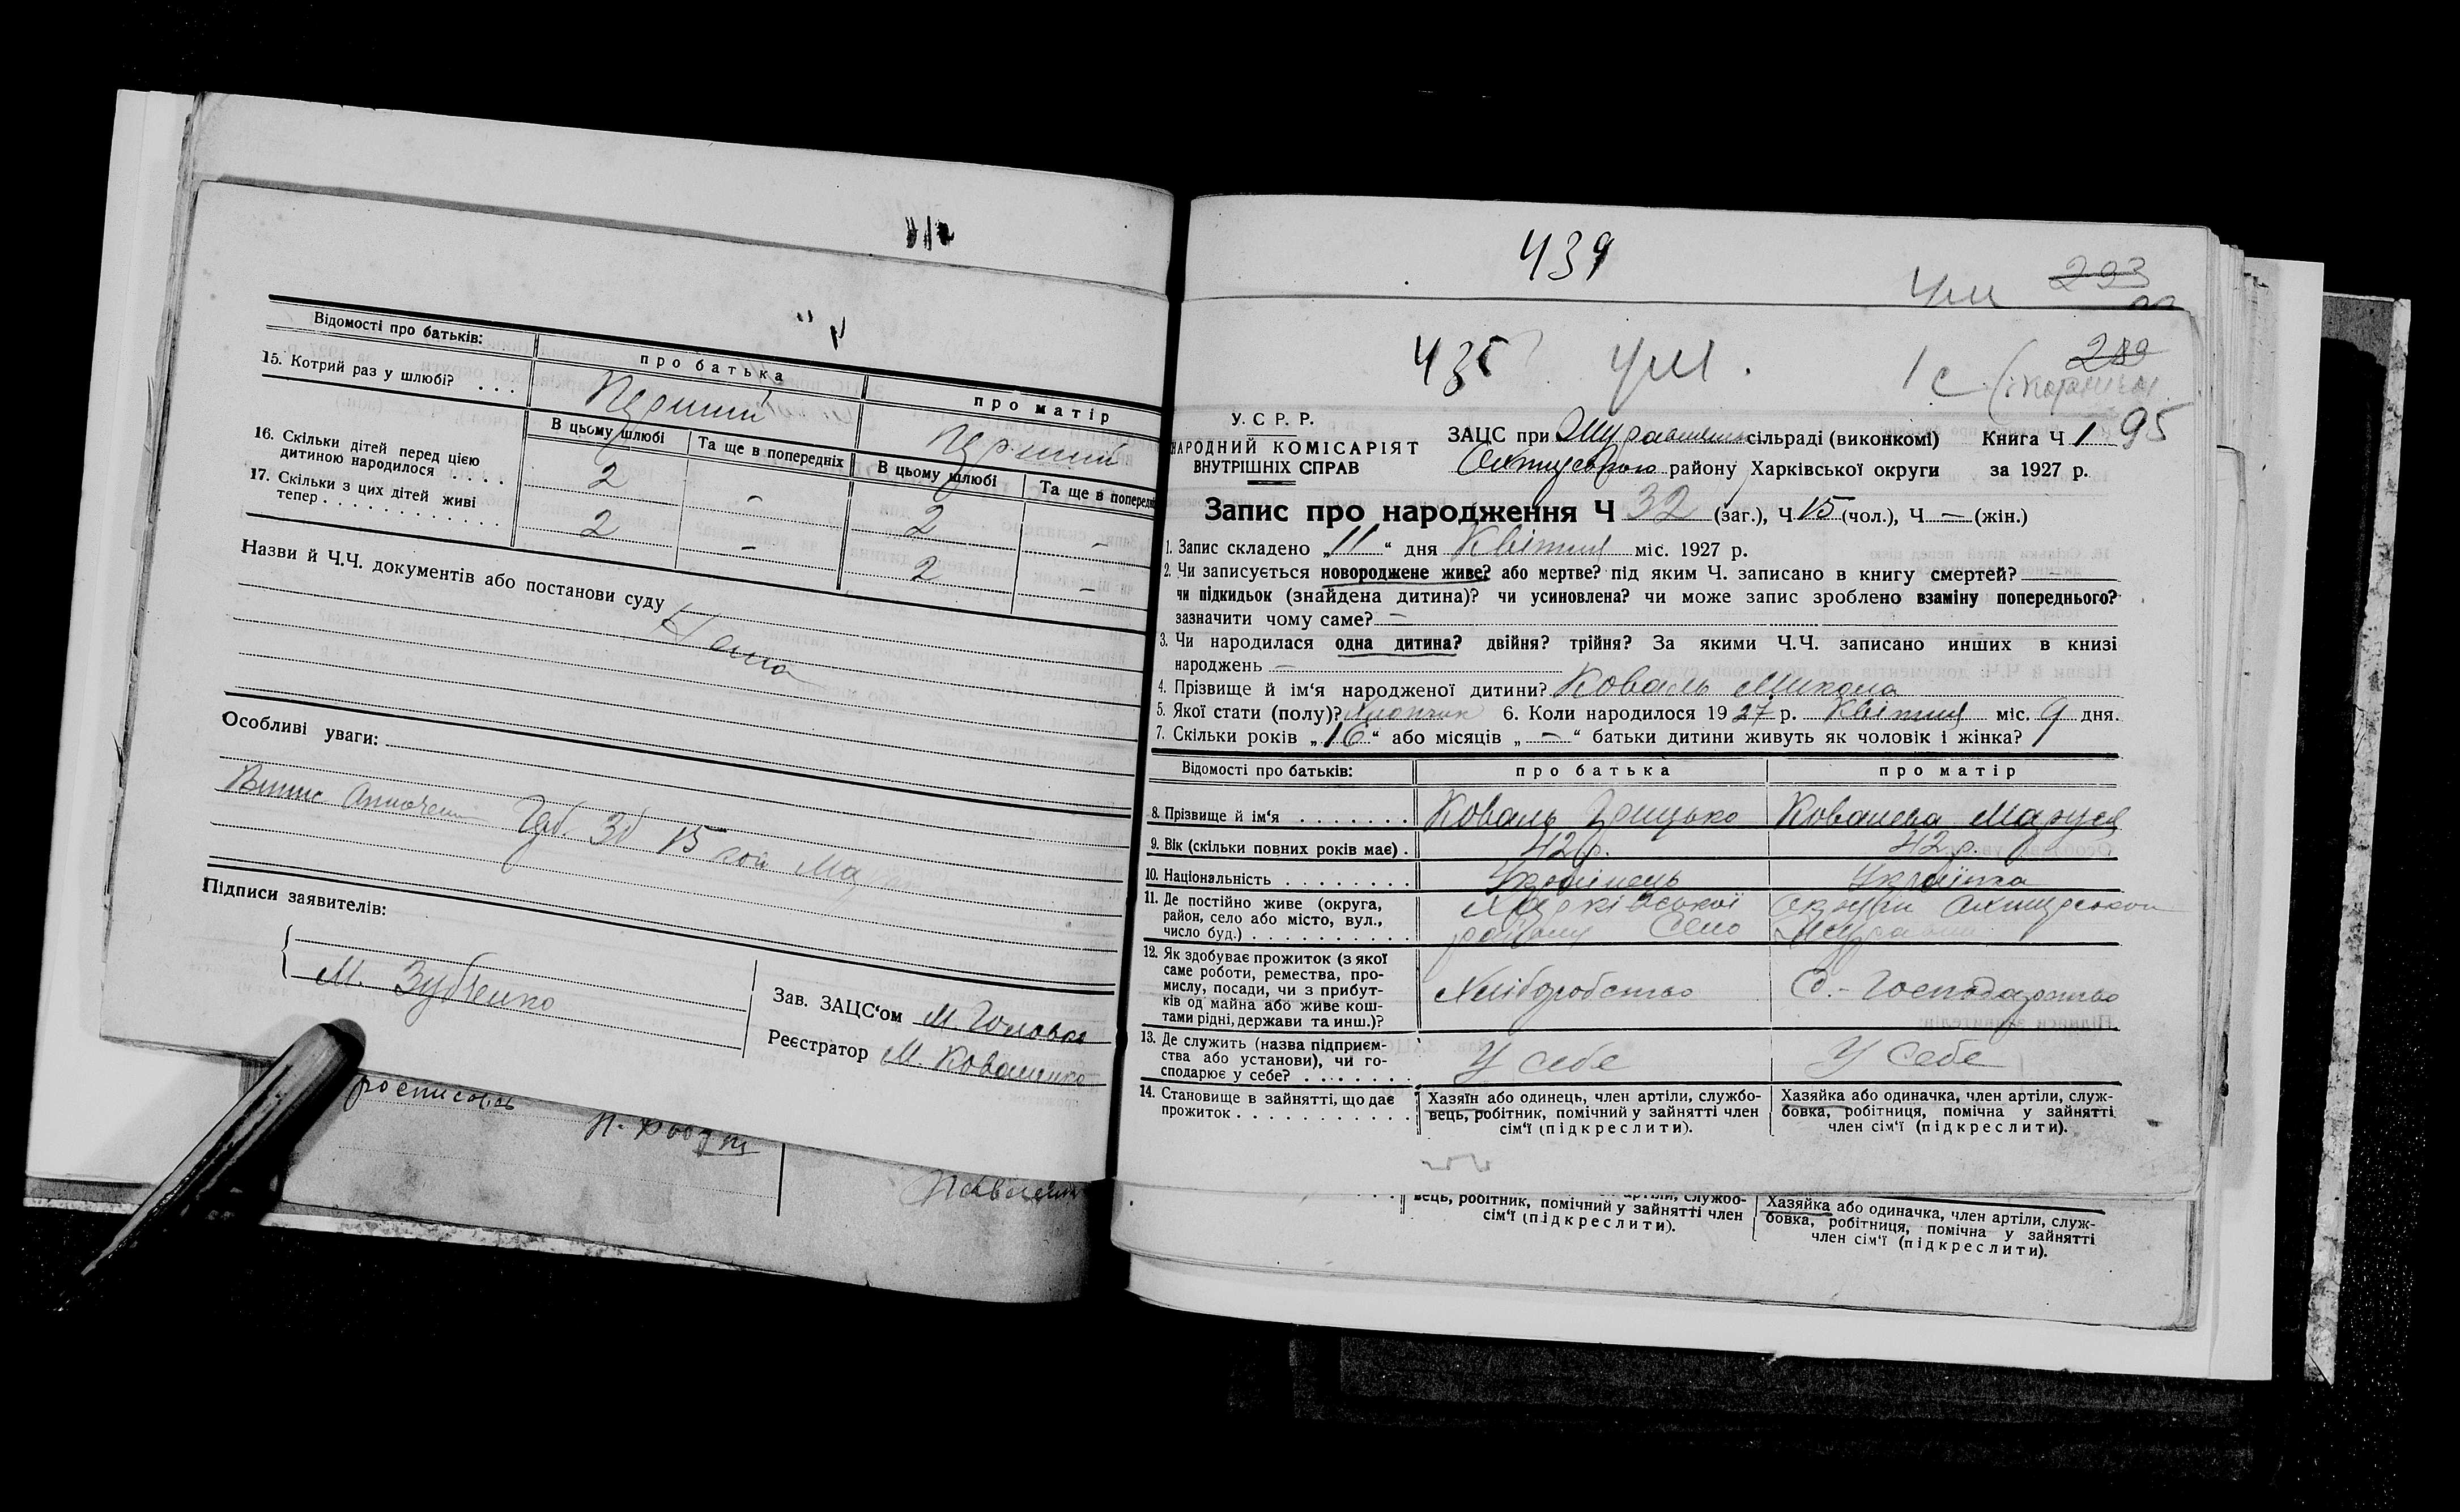 Відомості про батьків:
про батька
про матір
15. Котрий раз у шлюбі? . . .
Перший
Перший
В цьому шлюбі
Та ще в попередніх
В цьому шлюбі
Та ще в попередні
16. Скільки дітей перед цією
дитиною народилося . . . .
2 - 2 -
17. Скільки з цих дітей живі
тепер . . . . . . . . . . . . .
2 - 2 -
Назви й Ч.Ч. документів або постанови суду
Нема
Особливі уваги:
Гаф. Зб 15 коп
Підписи заявителів:
М. Зубченко
Зав. ЗАЦС'ом М. Головко
Реєстратор М. Коваленко
439
293
435
чм.
1 с
289
95
У. С. Р. Р.
НАРОДНИЙ КОМІСАРІЯТ
ВНУТРІШНІХ СПРАВ
ЗАЦС при сільраді (виконкомі) Книга Ч 1
району Харківської округи за 1927 р.
Запис про народження Ч 32 (заг.), Ч 15 (чол.), Ч — (жін.)
1. Запис складено „11“ дня Квітня міс. 1927 р.
2. Чи записується новороджене живе? або мертве? під яким Ч. записано в книгу смертей? —
чи підкидьок (знайдена дитина)? чи усиновлена? чи може запис зроблено взаміну попереднього?
зазначити чому саме? —
3. Чи народилася одна дитина? двійня? трійня? За якими Ч.Ч. записано инших в книзі
народжень —
4. Прізвище й ім'я народженої дитини? Коваль Микола
5. Якої стати (полу)? Хлопчик 6. Коли народилося 1927 р. Квітня міс. 9 дня.
7. Скільки років „16“ або місяців „—“ батьки дитини живуть як чоловік і жінка?
Відомості про батьків:
про батька
про матір
8. Прізвище й ім'я . . . . . . .
Коваль Грицько
Ковалева Маруся
9. Вік (скільки повних років має) .
42 р.
42 р.
10. Національність . . . . . . . .
Українець
Українка
11. Де постійно живе (округа,
район, село або місто, вул.,
число буд.) . . . . . . . . . .
Харківської округи
району Село
12. Як здобуває прожиток (з якої
саме роботи, ремества, про-
мислу, посади, чи з прибут-
ків од майна або живе кош-
тами рідні, держави та инш.)?
Хліборобство
С.-Господарство
13. Де служить (назва підприєм-
ства або установи), чи го-
сподарює у себе? . . . . . . .
У себе
У себе
14. Становище в зайнятті, що дає
прожиток . . . . . . . . . . .
Хазяїн або одинець, член артіли, службо-
вець, робітник, помічний у зайнятті член
сім'ї (підкреслити).
Хазяйка або одиначка, член артіли, служ-
бовка, робітниця, помічна у зайнятті
член сім'ї (підкреслити).
вець, робітник, помічний у зайнятті член
сім'ї (підкреслити).
Хазяйка або одиначка, член артіли, служ-
бовка, робітниця, помічна у зайнятті
член сім'ї (підкреслити).